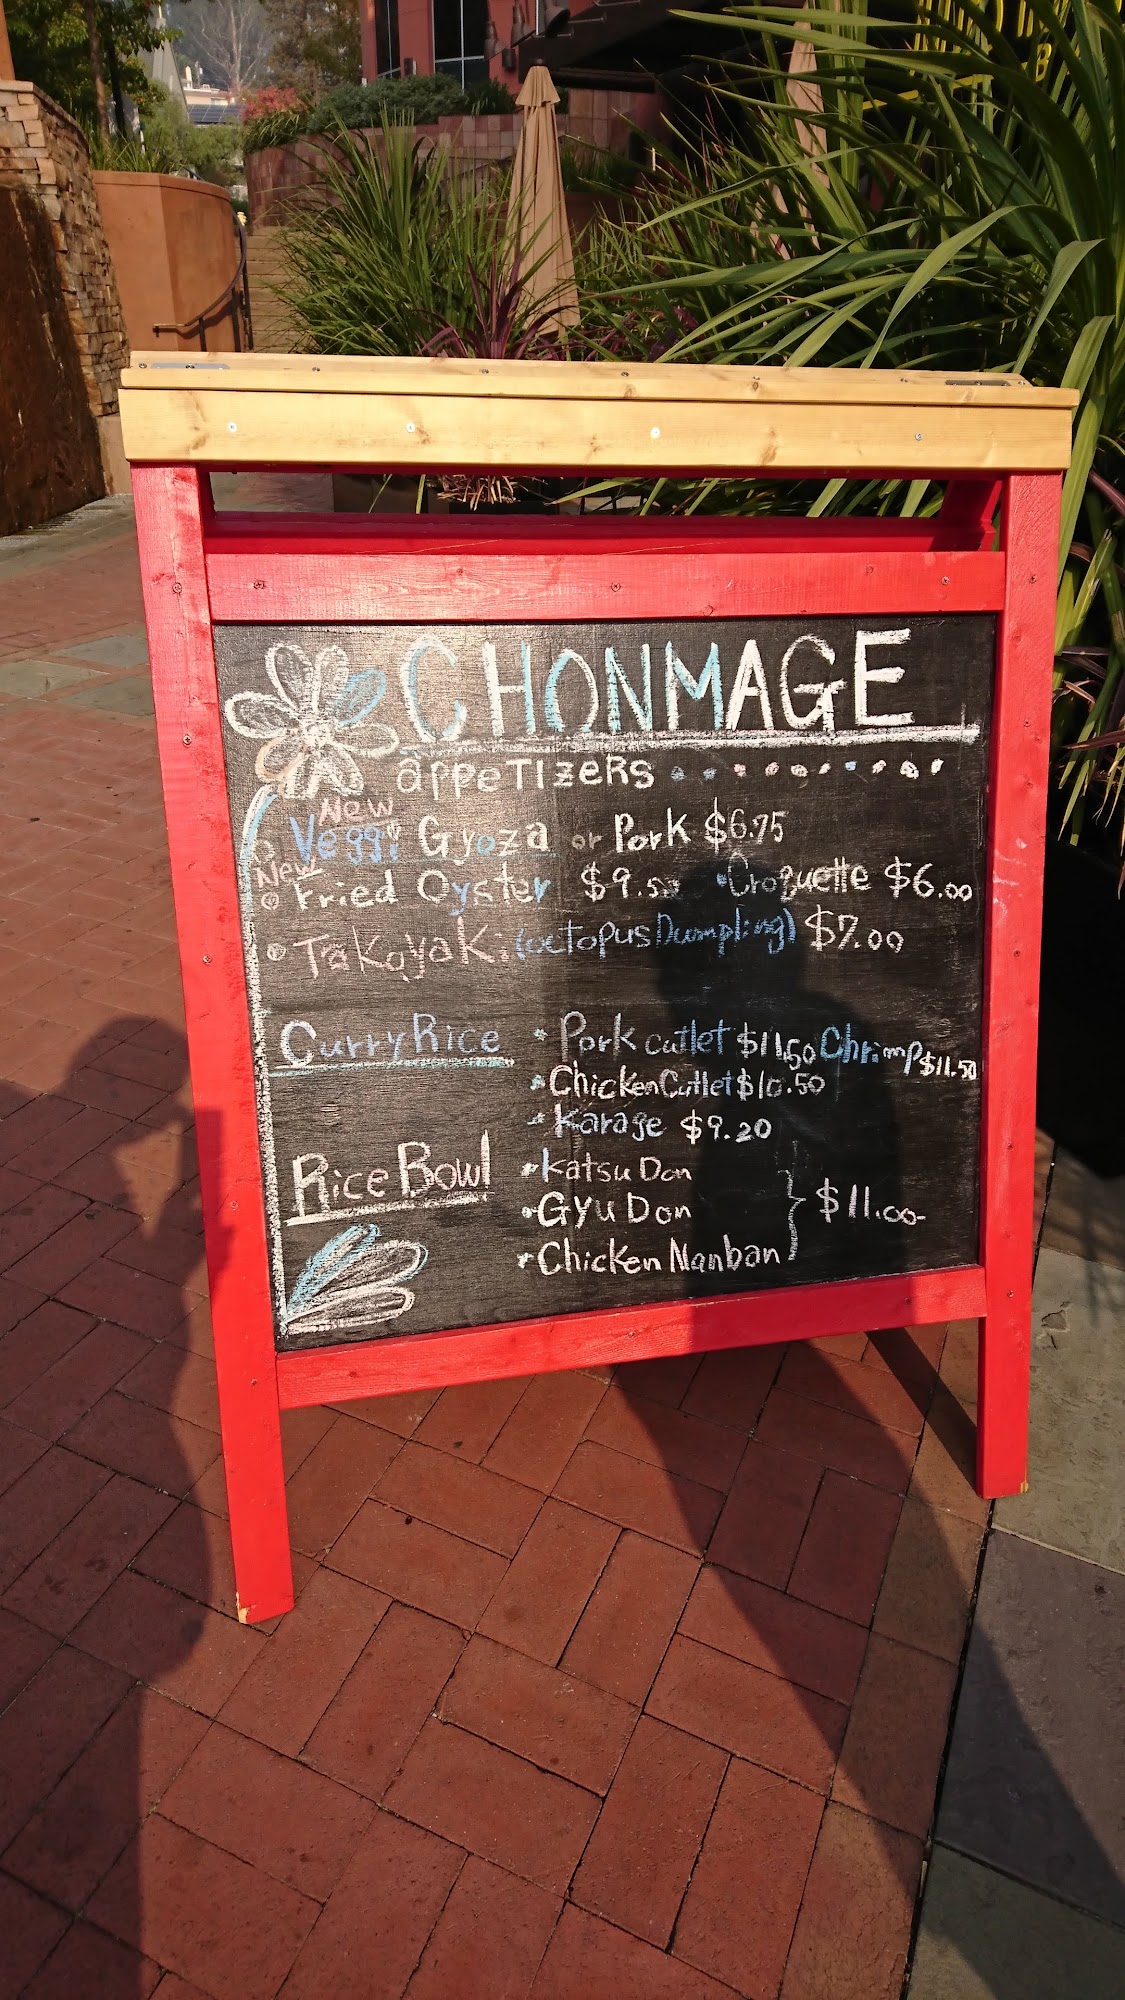 CHONMAGE
appeTizeRs
New
Veggi Gyoza or Pork $6.75
New
Fried Oyster $9.50 Croquette $6.00
Takoyaki (octopus Dumpling) $7.00
Curry Rice Pork cutlet $11.50 Chrimp $11.50
Chicken Cutlet $10.50
Karage $9.20
Rice Bowl Katsu Don
Gyu Don } $11.00
Chicken Nanban